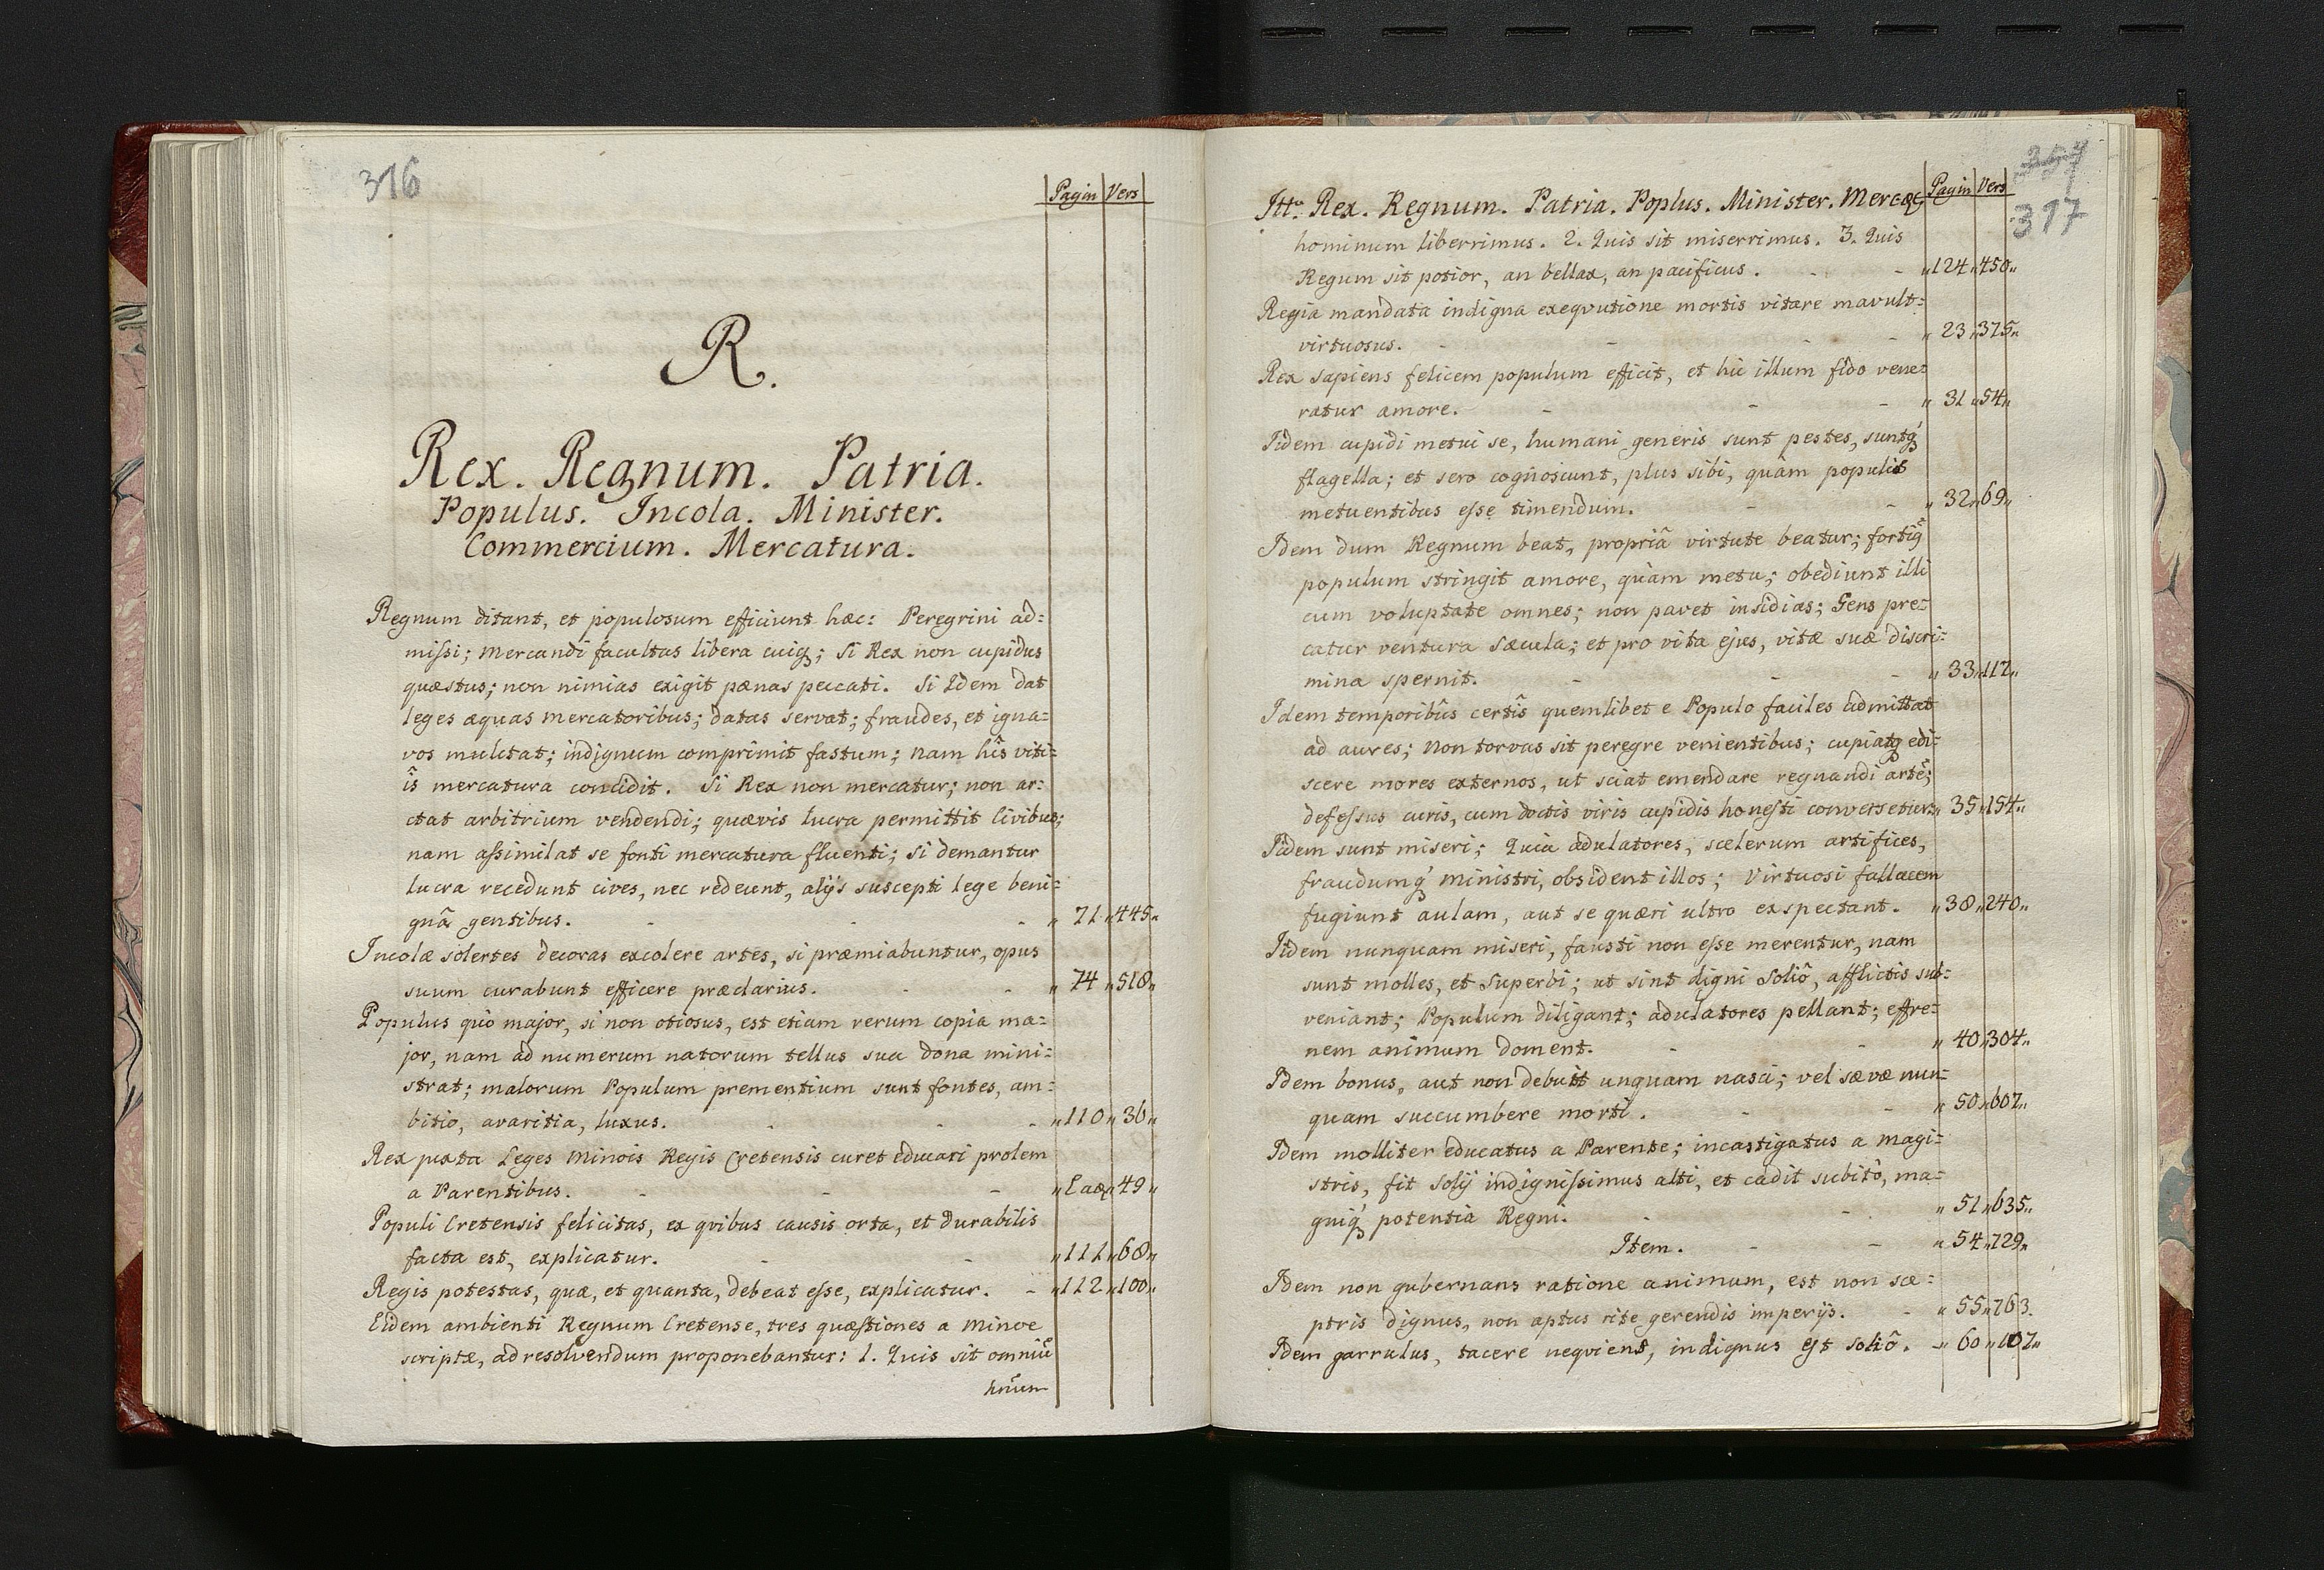 316
Pagin Vers
R.
Rex. Regnum. Patria.
Populus. Incola. Minister.
Commercium. Mercatura.
Regnum ditant, et populosum efficiunt hæc: Peregrini ad=
missi; mercandi facultas libera cuiq3; si Rex non cupidus
quæstus; non nimias exigit pænas peccati. Si Idem dat
leges æquas mercatoribus; datas servat; fraudes, et igna=
vos mulctat; indignum comprimit fastum; nam hîs viti=
îs mercatura concidit. Si Rex non mercatur; non ar=
ctat arbitrium vendendi; quævis lucra permittit Civibus;
nam assimilat se fonti mercatura fluenti; si demantur
lucra recedunt cives, nec redeunt, alijs suscepti lege beni=
gnâ gentibus. - - - " 71 " 445 "
Incolæ solertes decoras excolere artes, si præmiabuntur, opus
suum curabunt efficere præclarius. - - " 74 " 518 "
Populus quò major, si non otiosus, est etiam rerum copia ma=
jor, nam ad numerum natorum tellus sua dona mini=
strat; malorum Populum prementium sunt fontes, am=
bitio, avaritia, luxus. - - - " 110 " 36 "
Rex juxta Leges Minois Regis Cretensis curet educari prolem
a Parentibus. - - - " Eaq3 " 49 "
Populi Cretensis felicitas, ex qvibus causis orta, et durabilis
facta est, explicatur. - - " 111 " 68 "
Regis potestas, quæ, et quanta, debeat esse, explicatur. - " 112 " 100 "
Eidem ambienti Regnum Cretense, tres quæstiones a Minoe
scriptæ, ad resolvendum proponebantur: 1. Quis sit omniũ
hoũm
357
317
Itt. Rex. Regnum. Patria. Poplus. Minister. Mercaq3 Pagin Vers
hominum liberrimus. 2. Quis sit miserrimus. 3. Quis
Regum sit potior, an bellax, an pacificus. - - " 124 " 450 "
Regia mandata indigna exeqvutione mortis vitare mavult=
virtuosus. - - - - " 23 " 375 "
Rex sapiens felicem populum efficit, et hic illum fido vene=
ratur amore. - - - " 31 " 54 "
Iidem cupidi metui se, humani generis sunt pestes, suntq3
flagella; et sero cognoscunt, plus sibi, quàm populis
metuentibus esse timendum. - - " 32 " 69 "
Idem dum Regnum beat, propriâ virtute beatur; fortiq3
populum stringit amore, quàm metu; obediunt illi
cum voluptate omnes; non pavet insidias; Gens pre=
catur ventura sæcula; et pro vita ejus, vitæ suæ discri=
mina spernit. - - - " 33 " 112 "
Idem temporibûs certîs quemlibet e Populo faciles admittat
ad aures; non torvus sit peregre venientibus; cupiatq3 edi=
scere mores externos, ut sciat emendare regnandi artẽ;
defessus curis, cum doctis viris cupidis honesti conversetur. " 35 " 154 "
Iidem sunt miseri; Quia adulatores, scelerum artifices,
fraudumq3 ministri, obsident illos; Virtuosi fallacem
fugiunt aulam, aut se quæri ultro exspectant. " 38 " 240 "
Iidem nunquam miseri, fausti non esse merentur, nam
sunt molles, et Superbi; ut sint digni Soliô, afflictis sub=
veniant; Populum diligant; adulatores pellant; effre=
nem animum doment. - - " 40 " 304 "
Idem bonus, aut non debuit unquam nasci; vel sævæ nun=
quam succumbere morti. - - " 50 " 607 "
Idem molliter educatus a Parente; incastigatus a magi=
stris, fit solij indignissimus alti, et cadit subitò, ma=
gniq3 potentia Regni. - - " 51 " 635 "
Item. - - " 54 " 729 "
Idem non gubernans ratione animum, est non sce=
ptris dignus, non aptus rite gerendis imperijs. - " 55 " 763.
Idem garrulus, tacere neqviens, indignus est soliô. - " 60 " 107 "